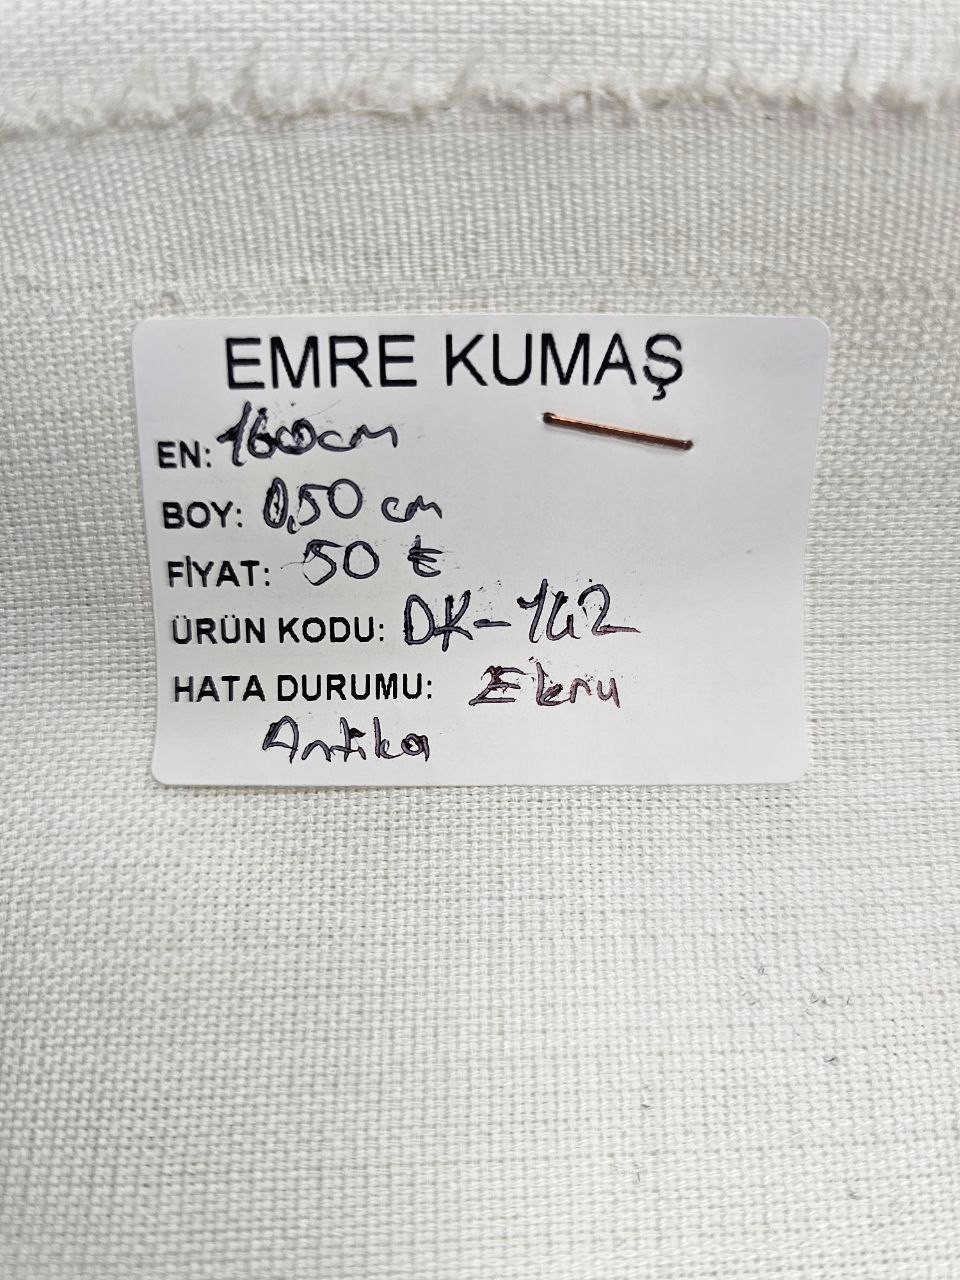 EMRE KUMAŞ
EN: 160cm
BOY: 0,50 cm
FİYAT: 50 ₺
ÜRÜN KODU: DK-142
HATA DURUMU: Ekru
Antika